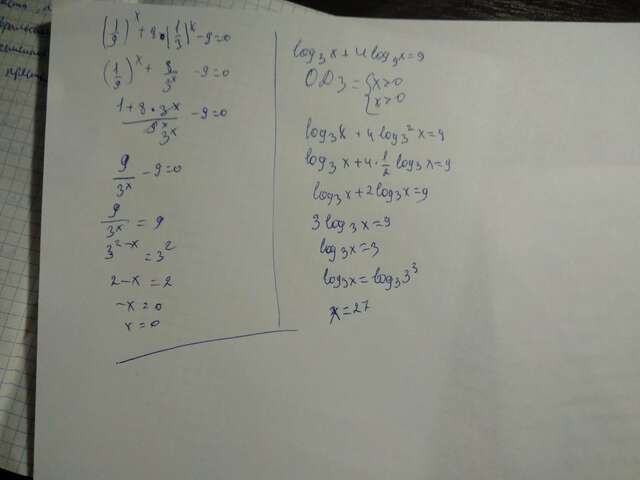 (1/9)^x + 8•(1/3)^x - 9=0
(1/9)^x + 8/3^x - 9=0
1+8•3^x / 3^x - 9=0
9/3^x - 9=0
9/3^x = 9
3^(2-x) = 3^2
2-x=2
-x=0
x=0
log₃x+4log₉x=9
ОДЗ={x>0
{x>0
log₃x+4log₃²x=9
log₃x+4•1/2 log₃x=9
log₃x+2log₃x=9
3log₃x=9
log₃x=3
log₃x=log₃3³
x=27